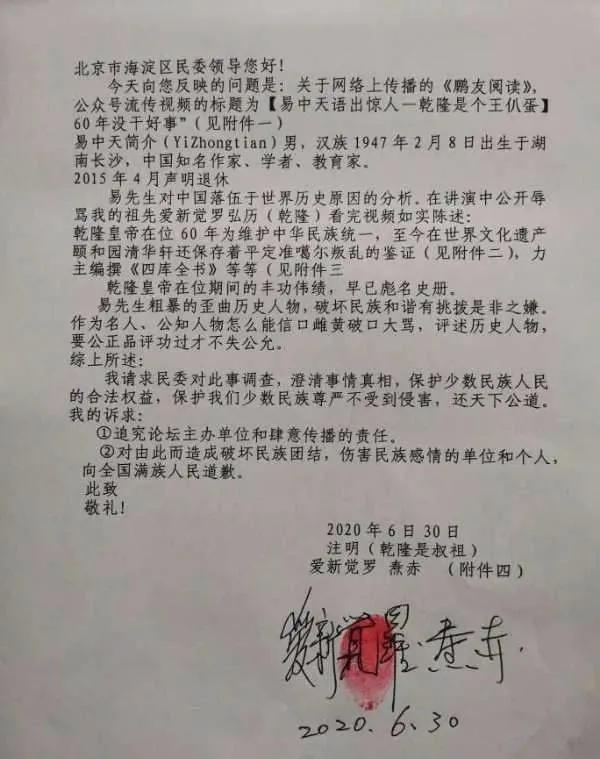 北京市海淀区民委领导您好！
今天向您反映的问题是：关于网络上传播的《鹏友阅读》，
公众号流传视频的标题为【易中天语出惊人一乾隆是个王仈蛋】
60年没干好事”（见附件一）
易中天简介（YiZhongtian）男，汉族1947年2月8日出生于湖
南长沙，中国知名作家、学者、教育家。
2015年4月声明退休
易先生对中国落伍于世界历史原因的分析。在讲演中公开辱
骂我的祖先爱新觉罗弘历（乾隆）看完视频如实陈述：
乾隆皇帝在位60年为维护中华民族统一，至今在世界文化遗产
颐和园清华轩还保存着平定准噶尔叛乱的鉴证（见附件二），力
主编撰《四库全书》等等（见附件三
乾隆皇帝在位期间的丰功伟绩，早已彪名史册。
易先生粗暴的歪曲历史人物，破坏民族和谐有挑拨是非之嫌。
作为名人、公知人物怎么能信口雌黄破口大骂，评述历史人物，
要公正品评功过才不失公允。
综上所述：
我请求民委对此事调查，澄清事情真相，保护少数民族人民
的合法权益，保护我们少数民族尊严不受到侵害，还天下公道。
我的诉求：
①追究论坛主办单位和肆意传播的责任。
②对由此而造成破坏民族团结，伤害民族感情的单位和个人，
向全国满族人民道歉。
此致
敬礼！
2020年6月30日
注明（乾隆是叔祖）
爱新觉罗 焘赤 （附件四）
爱新觉罗·焘赤.
2020.6.30